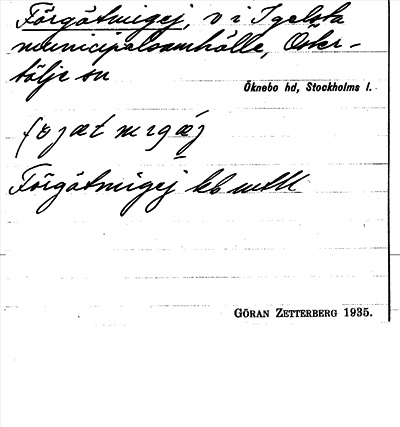 Förgätmigej, v i Igelsta
municipalsamhälle, Öster-
tälje sn
Öknebo hd, Stockholms l.
Förgätmigej kb
GÖRAN ZETTERBERG 1935.